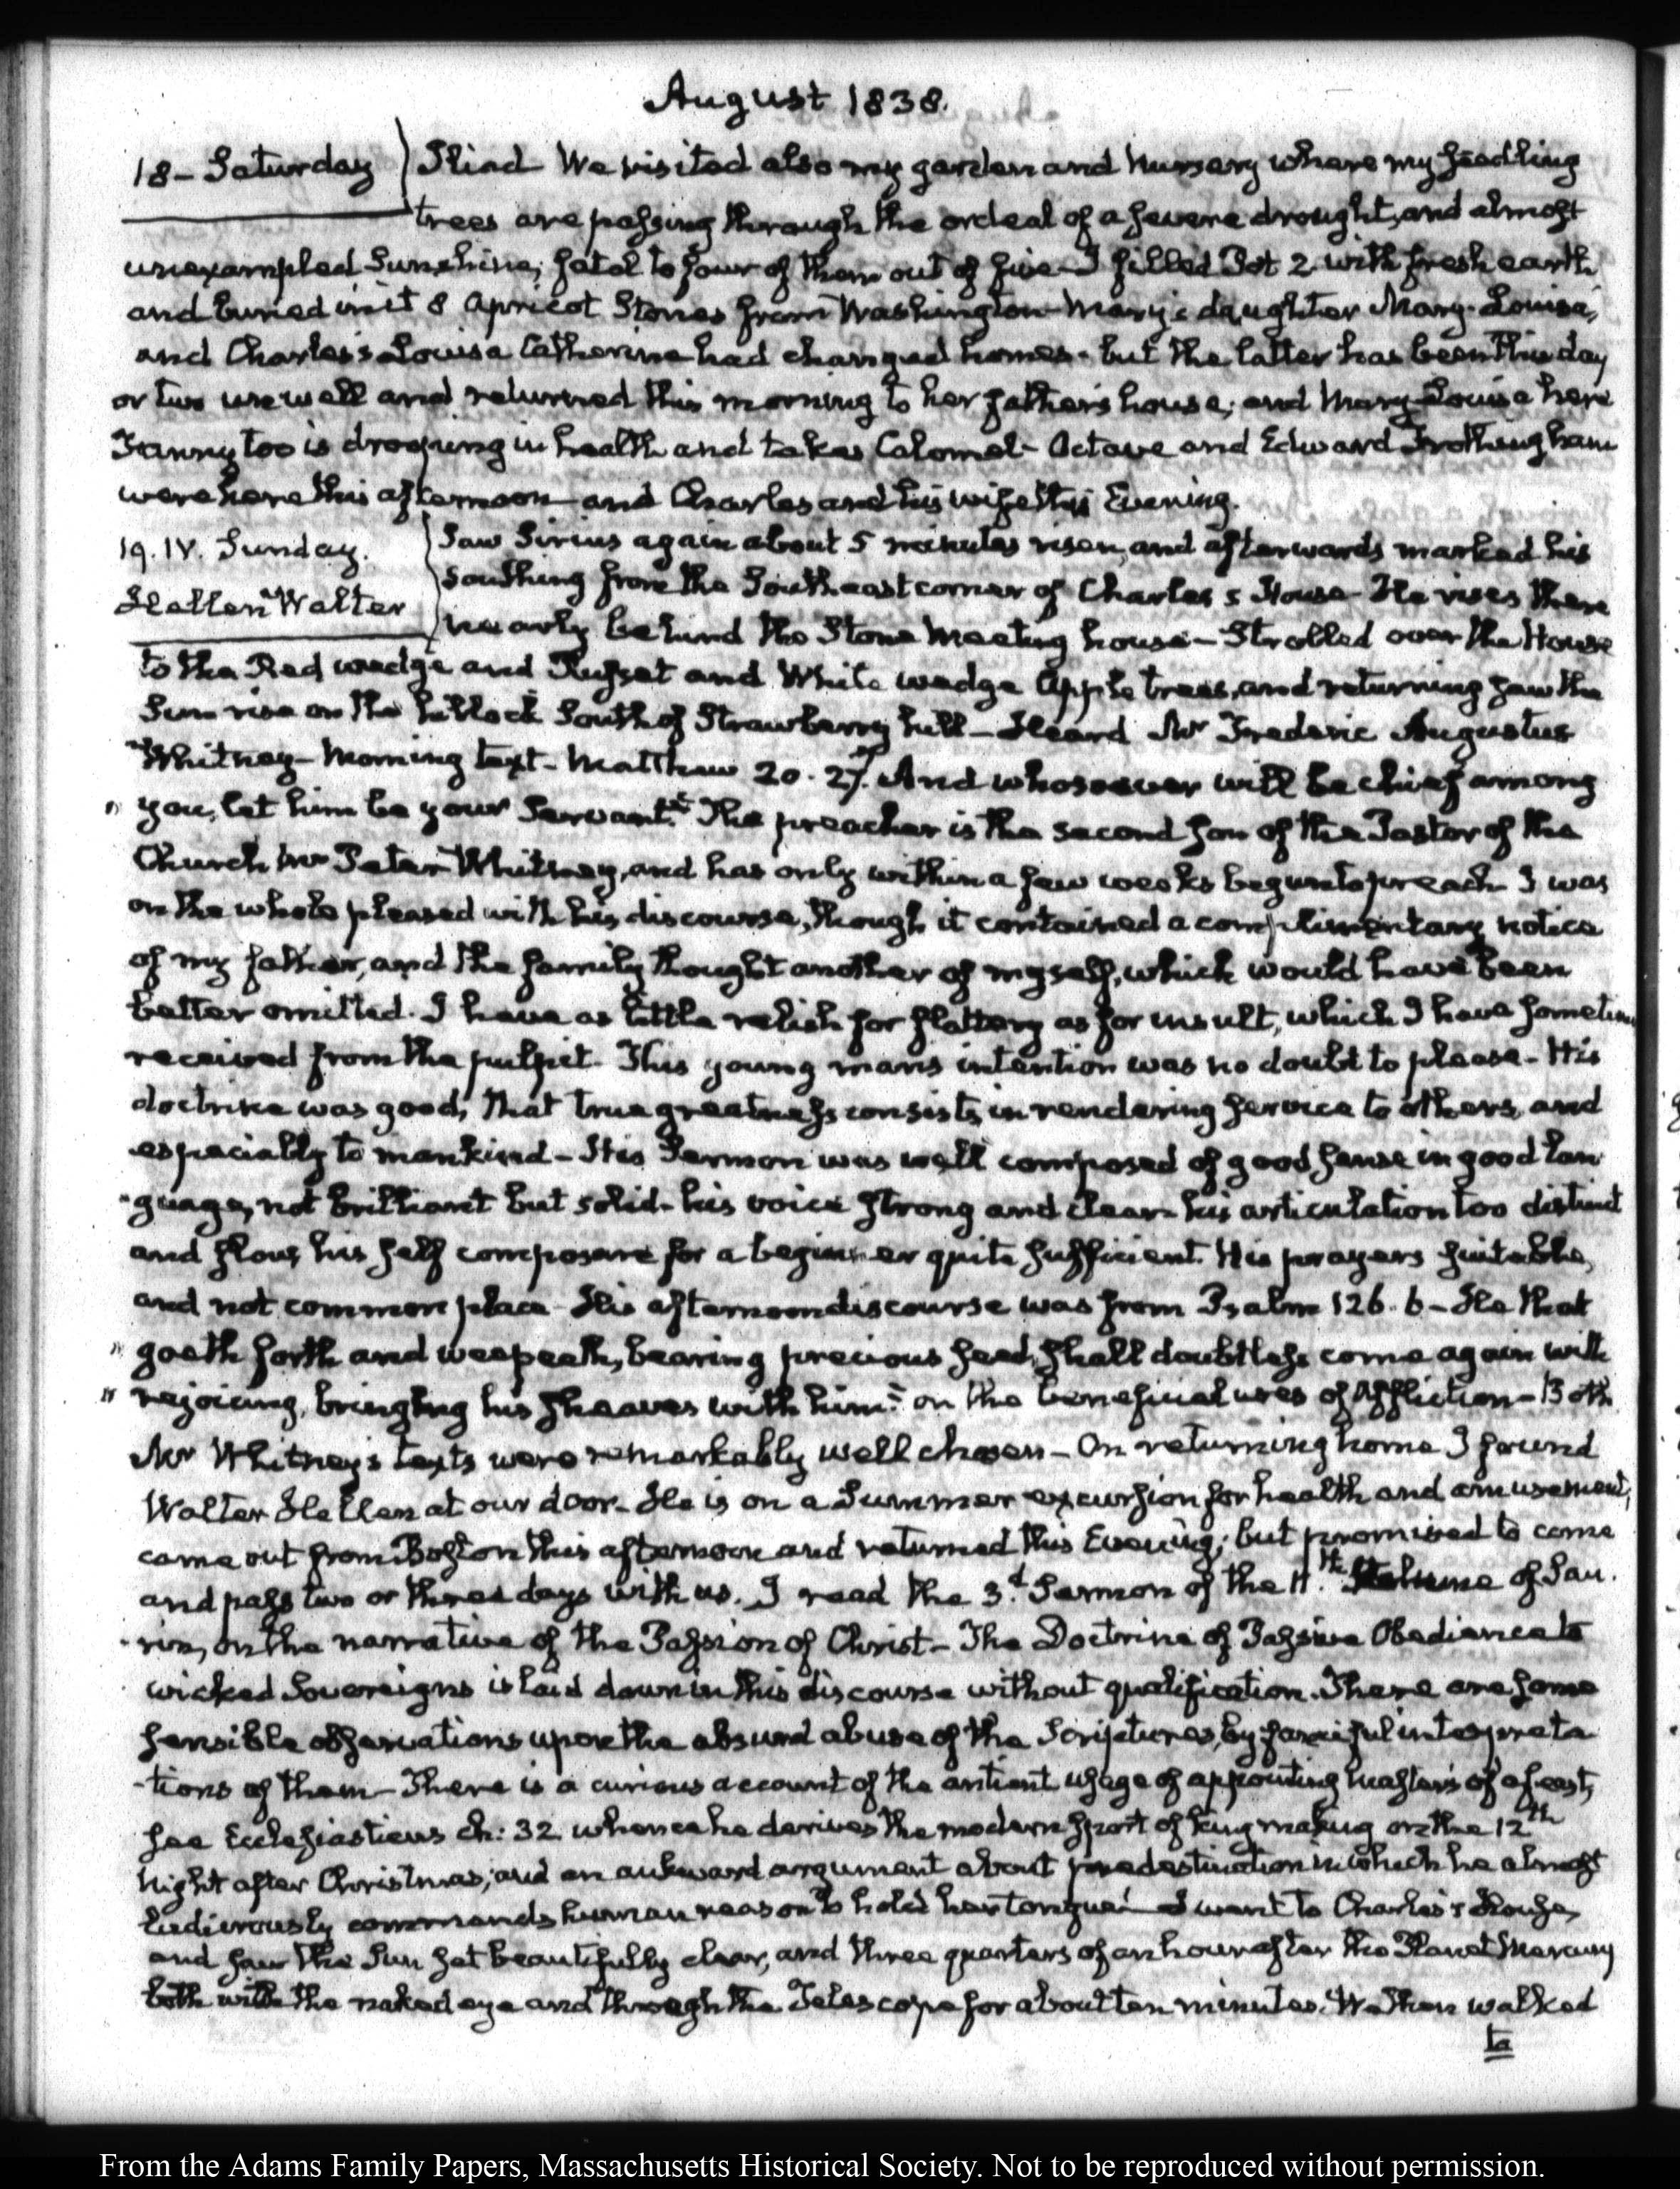 August 1838.
18 - Saturday
Iliad. We visited also my garden and Nursery where my seedling
trees are passing through the ordeal of a severe drought, and almost
unexampled Sunshine; fatal to four of them out of five - I filled Pot 2 with fresh earth
and buried in it 8 Apricot Stones from Washington - Mary's daughter Mary-Louisa,
and Charles's Louisa Catherine had changed homes - but the latter has been this day
or two unwell and returned this morning to her father's house; and Mary-Louisa here
Fanny too is drooping in health and takes Calomel - Octave and Edward Frothingham
were here this afternoon and Charles and his wife this Evening.
19. IV. Sunday.
Hellen Walter
Saw Sirius again about 5 minutes risen, and afterwards marked his
southing from the Southeast corner of Charles's House - He rises there
nearly behind the Stone Meeting house - Strolled over the House
to the Red wedge and Russet and White wedge Apple trees, and returning saw the
Sun rise on the hillock South of Strawberry hill - Heard Mr Frederic Augustus
Whitney - Morning text - Matthew 20. 27. "And whosoever will be chief among
" you, let him be your Servant." The preacher is the second Son of the Pastor of the
Church Mr Peter Whitney, and has only within a few weeks begun to preach - I was
on the whole pleased with his discourse, though it contained a complimentary notice
of my father, and the family thought another of myself, which would have been
better omitted. I have as little relish for flattery as for insult, which I have sometimes
received from the pulpit - This young man's intention was no doubt to please - His
doctrine was good, that true greatness consists in rendering service to others, and
especially to mankind - His Sermon was well composed of good sense in good lan
-guage, not brilliant but solid - his voice strong and clear - his articulation too distinct
and slow, his self composure for a beginner quite sufficient. His prayers suitable,
and not common place - His afternoon discourse was from Psalm 126. 6 - He that
" goeth forth and weepeth, bearing precious seed, shall doubtless come again with
" rejoicing, bringing his sheaves with him." on the beneficial uses of Affliction - Both
Mr Whitney's texts were remarkably well chosen - On returning home I found
Walter Hellen at our door - He is on a Summer excursion for health and amusement;
came out from Boston this afternoon and returned this Evening; but promised to come
and pass two or three days with us. I read the 3.d Sermon of the 11.th Volume of Sau.
-rin, on the narrative of the Passion of Christ - The Doctrine of Passive Obedience to
wicked Sovereigns is laid down in this discourse without qualification. There are some
sensible observations upon the absurd abuse of the Scriptures, by fanciful interpreta
-tions of them - There is a curious account of the antient usage of appointing masters of a feast,
see Ecclesiasticus ch: 32 whence he derives the modern sport of king making on the 12th
night after Christmas; and an aukward argument about predestination in which he almost
ludicrously commands human reason to hold her tongue. I went to Charles's House,
and saw the Sun set beautifully clear, and three quarters of an hour after the Planet Mercury
both with the naked eye and through the Telescope for about ten minutes. We then walked
to
From the Adams Family Papers, Massachusetts Historical Society. Not to be reproduced without permission.